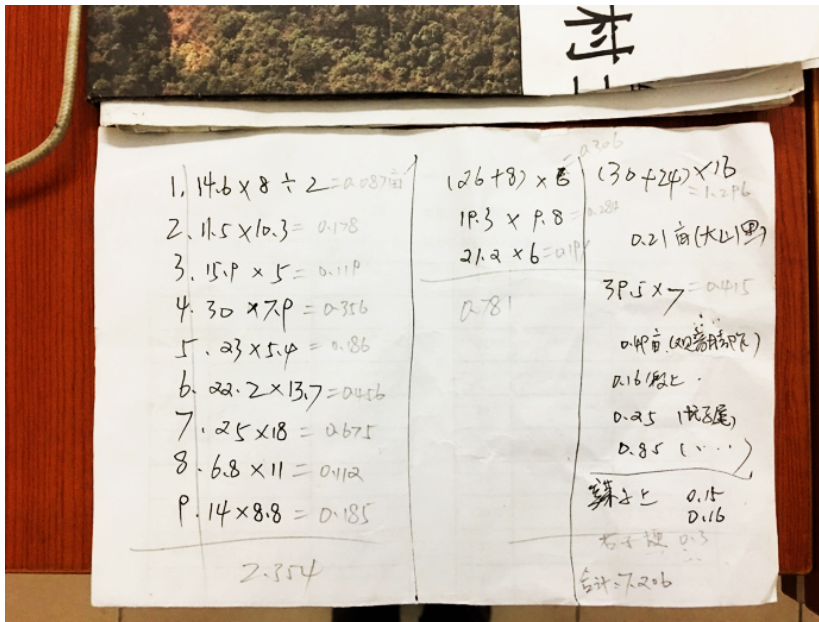 村
1. 14.6×8÷2=0.087亩
2. 11.5×10.3=0.178
3. 15.9×5=0.119
4. 30×7.9=0.356
5. 23×5.4=0.186
6. 22.2×13.7=0.456
7. 25×18=0.675
8. 6.8×11=0.112
9. 14×8.8=0.185
2.354
(26+8)×6=0.306
19.3×9.8=0.284
21.2×6=0.191
0.781
(30+24)×16
=1.296
0.21亩(大山里)
39.5×7=0.415
0.49亩
0.16
0.25
0.85(...)
0.15
0.16
0.3
合计:7.206